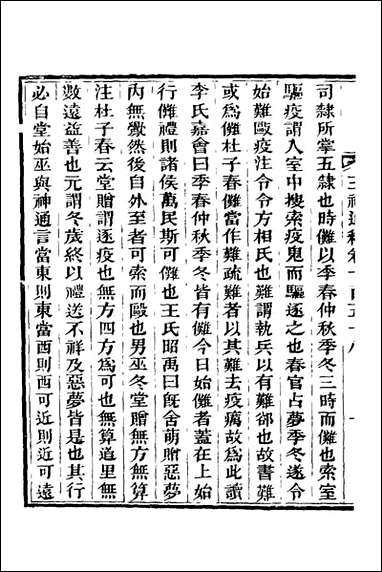 司隸所掌五隸也時儺以季春仲秋季冬三時而儺也索室
驅疫謂入室中搜索疫鬼而驅逐之也春官占夢季冬遂令
始難毆疫注令令方相氏也難謂執兵以有難郤也故書難
或為儺杜子春儺當作難疏難者以其難去疫癘故為此讀
李氏嘉會曰季春仲秋季冬皆有儺今日始儺者蓋在上始
行儺禮則諸侯萬民斯可儺也王氏昭禹曰旣舍萌贈惡夢
內無釁然後自外至者可索而毆也男巫冬堂贈無方無算
注杜子春云堂贈謂逐疫也無方四方為可也無算道里無
數遠益善也元謂冬歲終以禮送不祥及惡夢皆是也其行
必自堂始巫與神通言當東則東當西則西可近則近可遠